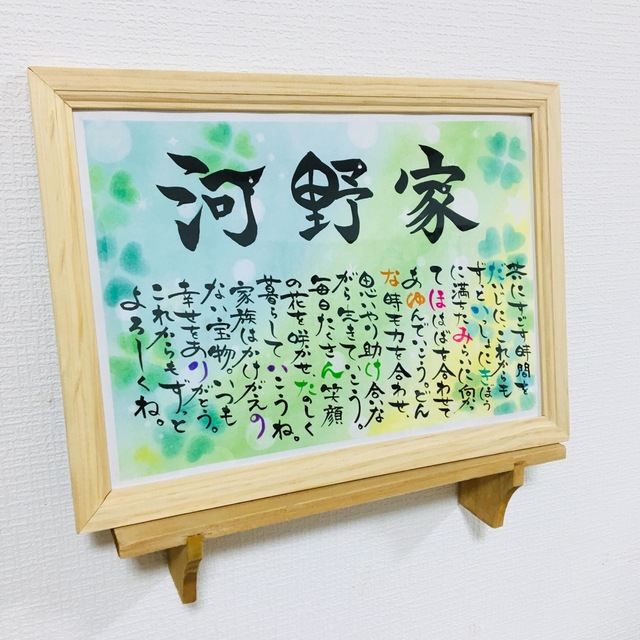 河野家
共にすごす時間を
だいじに、これからも
ずっといっしょにきぼう
に満ちたみらいに向か
てほはばを合わせて
あゆんでいこう。どん
な時も力を合わせ、
思いやり助け合いな
がら生きていこう。
毎日たくさん笑顔
の花を咲かせたのしく
暮らしていこうね。
家族はかけがえの
ない宝物。いつも
幸せをありがとう。
これからもずっと
よろしくね。